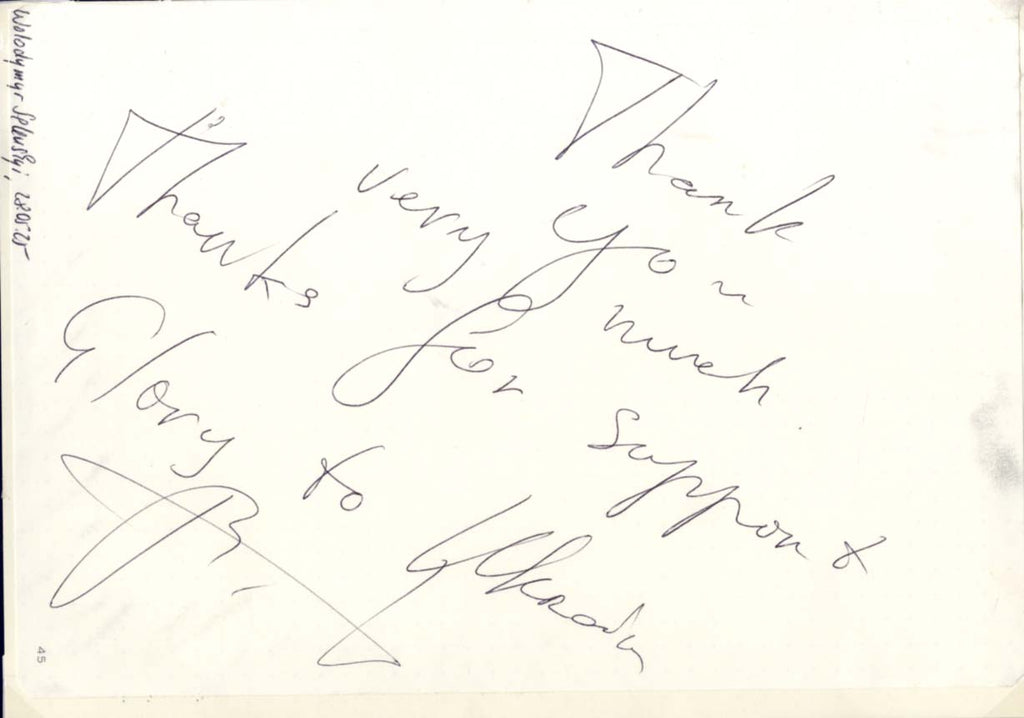 Wolodymyr Selenskyi, 28.05.25
Thank You
very much
Thanks for support
Glory to Ukraine
45